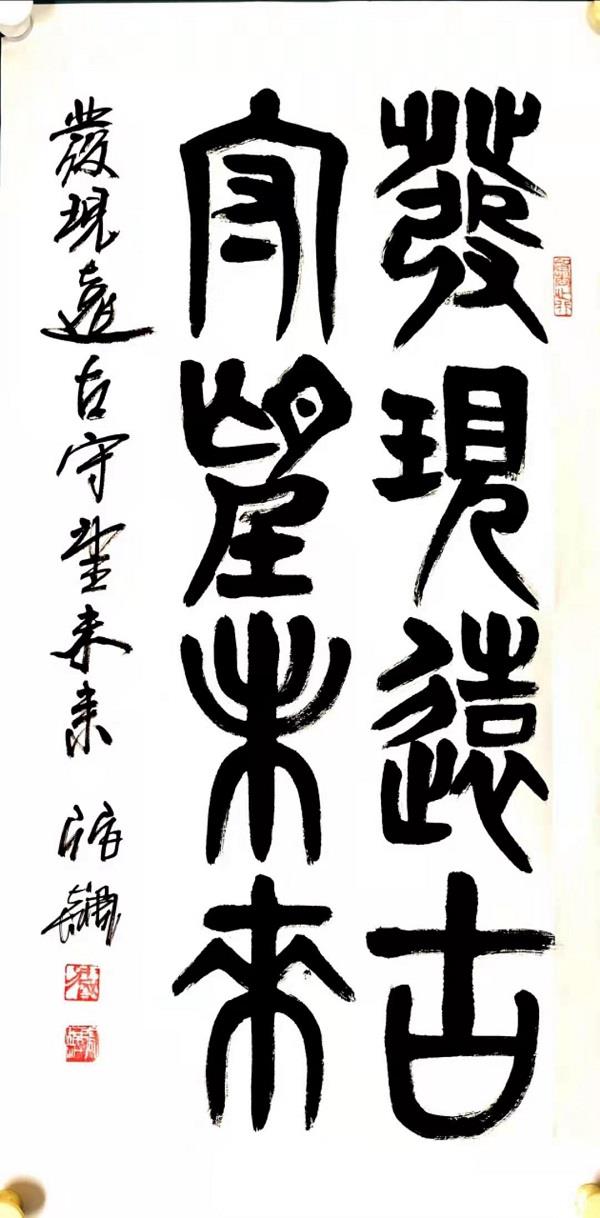 發現遠古
守望未來
發現遠古守望未來